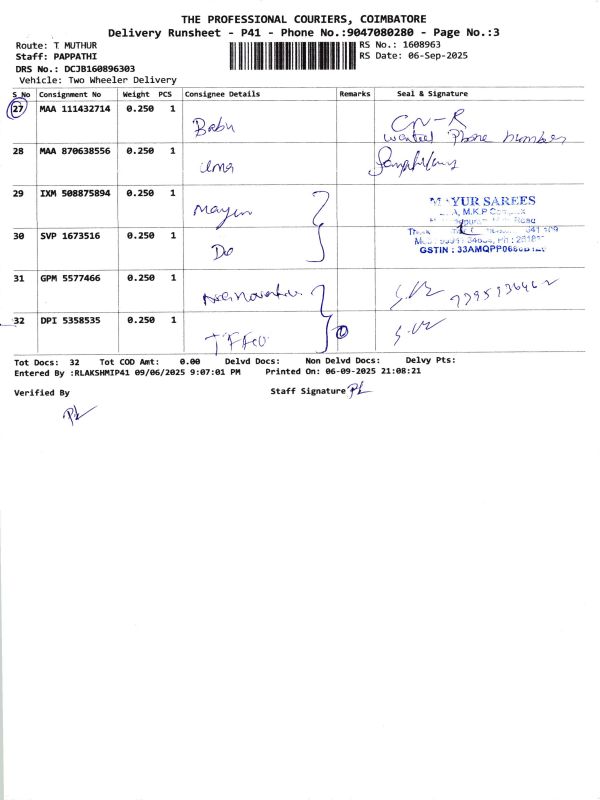 THE PROFESSIONAL COURIERS, COIMBATORE
Delivery Runsheet - P41 - Phone No.:9047080280 - Page No.:3
Route: T MUTHUR
RS No.: 1608963
Staff: PAPPATHI
RS Date: 06-Sep-2025
DRS No.: DCJB160896303
Vehicle: Two Wheeler Delivery
S_No Consignment No Weight PCS Consignee Details Remarks Seal & Signature
27 MAA 111432714 0.250 1 Babu CN-R
wanted Phone number
28 MAA 870638556 0.250 1 Uma
29 IXM 508875894 0.250 1 Mayur
MAYUR SAREES
M.K.P Complex
Road
30 SVP 1673516 0.250 1 Do
GSTIN : 33AMQPP0680
31 GPM 5577466 0.250 1
32 DPI 5358535 0.250 1
Tot Docs: 32 Tot COD Amt: 0.00 Delvd Docs: Non Delvd Docs: Delvy Pts:
Entered By :RLAKSHMIP41 09/06/2025 9:07:01 PM Printed On: 06-09-2025 21:08:21
Verified By
Staff Signature